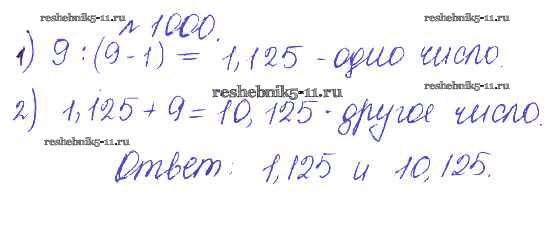 № 1000.
reshebnik5-11.ru reshebnik5-11.ru
1) 9 : (9 - 1) = 1,125 - одно число.
reshebnik5-11.ru reshebnik5-11.ru
2) 1,125 + 9 = 10,125 - другое число.
reshebnik5-11.ru reshebnik5-11.ru
Ответ: 1,125 и 10,125.